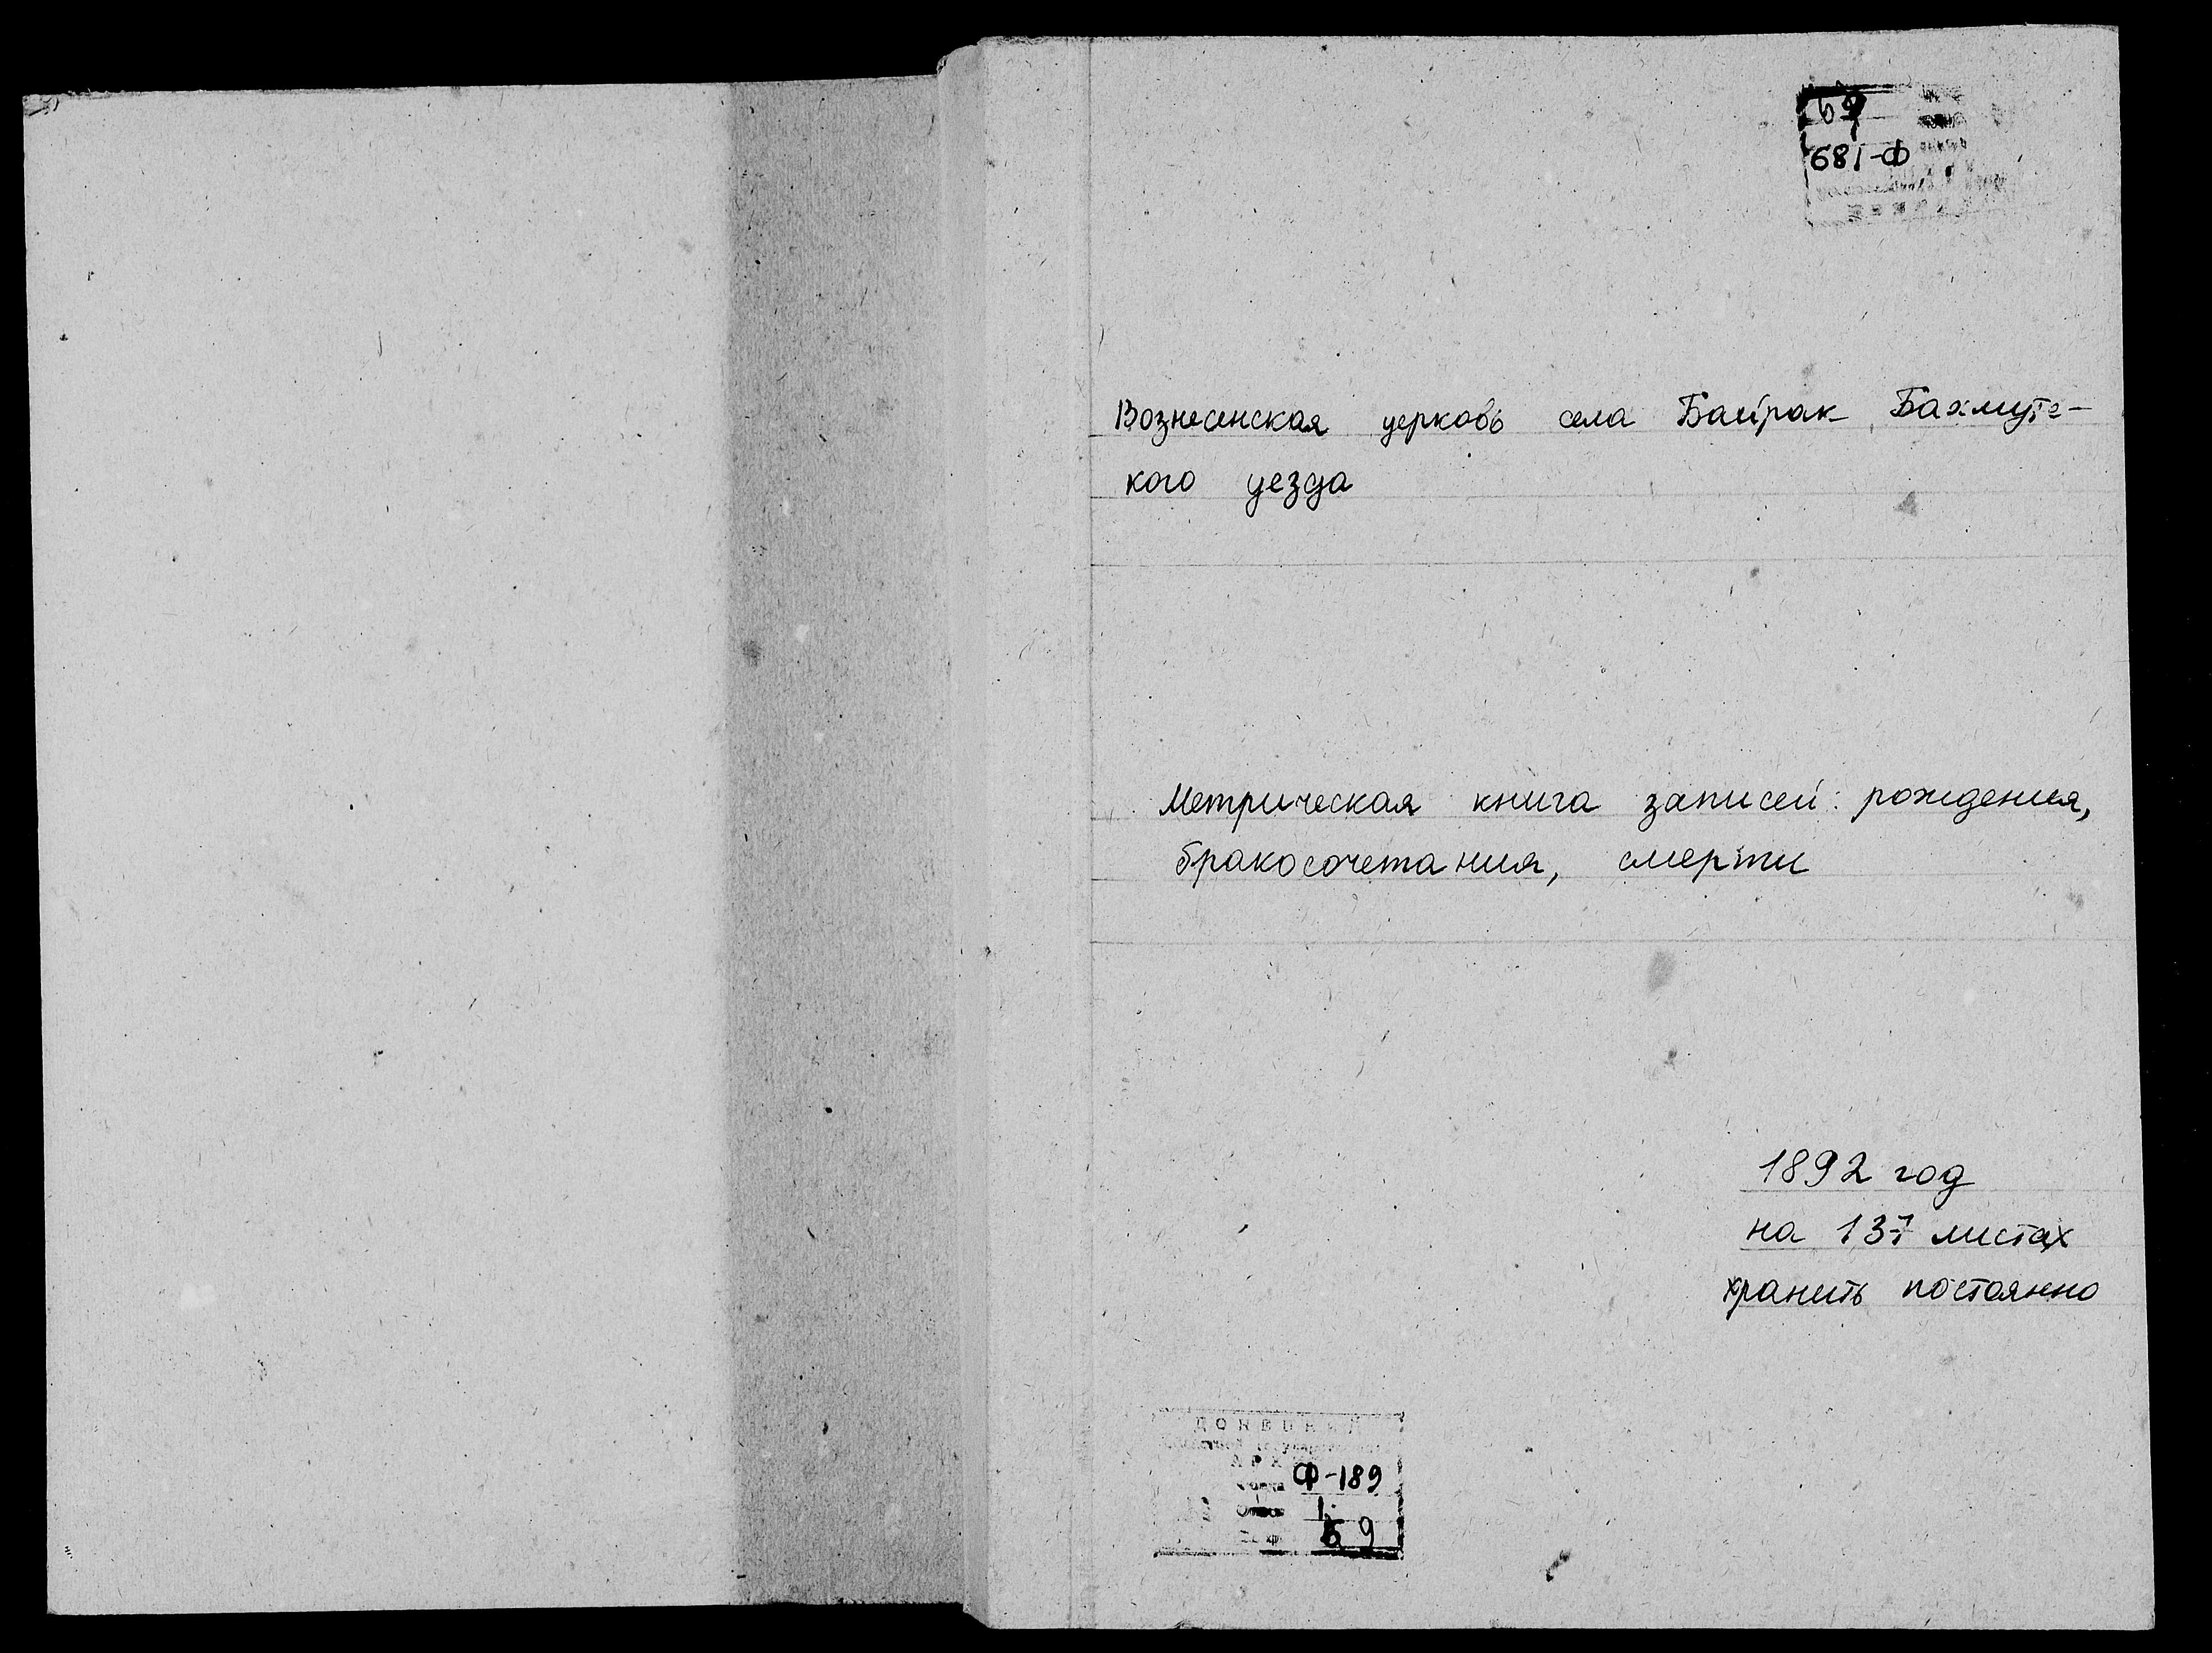 69
681-Ф
Вознесенская церковь села Байрак Бахмутс-
кого уезда
Метрическая книга записей: рождения,
бракосочетания, смерти
1892 год
на 137 листах
хранить постоянно
Ф-189
1
69